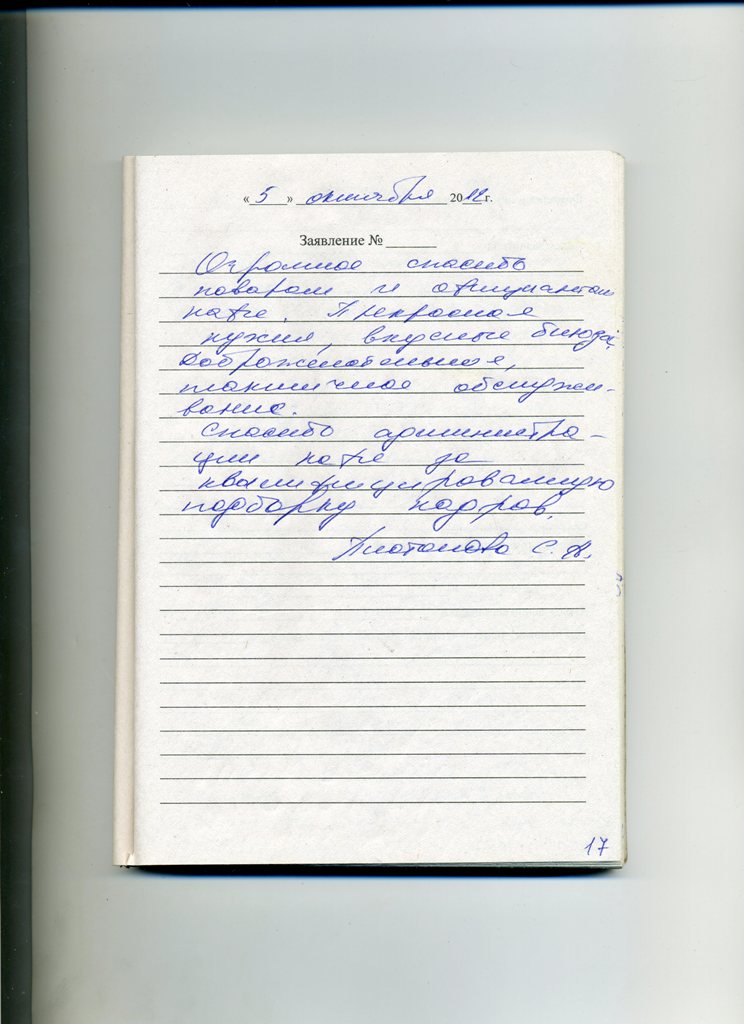 « 5 » октября 2012 г.
Заявление № ______
Огромное спасибо
поварам и официантам
кафе. Прекрасная
кухня, вкусные блюда.
Доброжелательное,
тактичное обслужи-
вание.
Спасибо администра-
ции кафе за
квалифицированную
подборку кадров.
Платонова С. А.
17